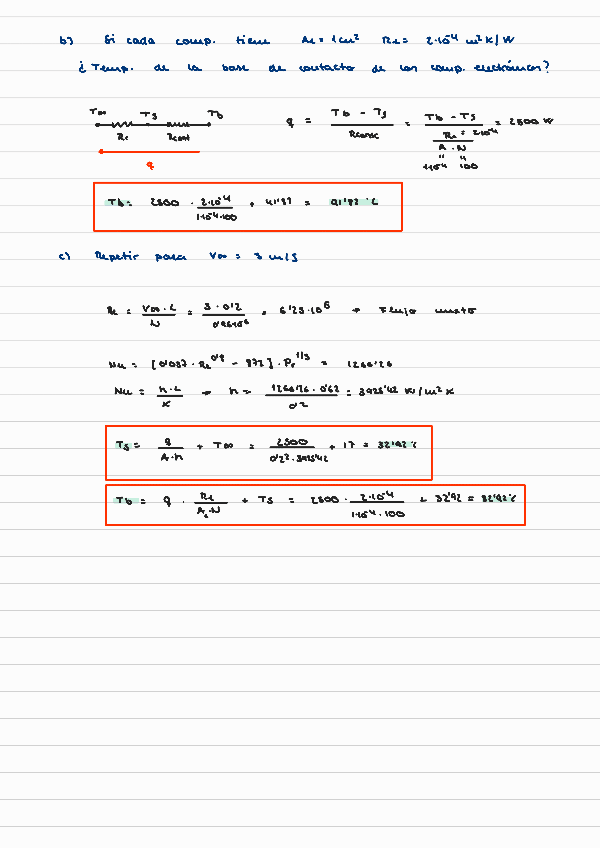 b) Si cada comp. tiene Ac = 1 cm² Rc = 2·10⁻⁴ m²K/W
¿Temp. de la base de contacto de los comp. electrónicos?
T∞ Ts Tb
Rc Rcont
q
q = (Tb - Ts)/Rcont = (Tb - Ts)/(Rc = 2·10⁻⁴/(A · N)) = 2500 W
" "
1·10⁻⁴ 100
Tb = 2500 · 2·10⁻⁴/(1·10⁻⁴·100) + 41'87 = 91'87 °C
c) Repetir para V∞ = 3 m/s
Re = V∞·L/N = 3·0'2/(0'96·10⁻⁶) = 6'25·10⁵ → Flujo mixto
Nu = [0'037 · Re^0'8 - 872] · Pr^1/3 = 1266'26
Nu = h·L/K → h = 1266'26 · 0'62/0'2 = 3925'42 W/m²K
Ts = q/(A·h) + T∞ = 2500/(0'2²·3925'42) + 17 = 32'92 °C
Tb = q · Rc/(Ac·N) + Ts = 2500 · 2·10⁻⁴/(1·10⁻⁴·100) + 32'92 = 82'92 °C